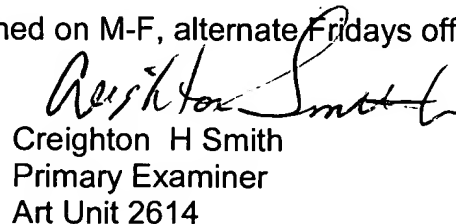 ned on M-F, alternate Fridays off
Creighton Smith
Creighton H Smith
Primary Examiner
Art Unit 2614